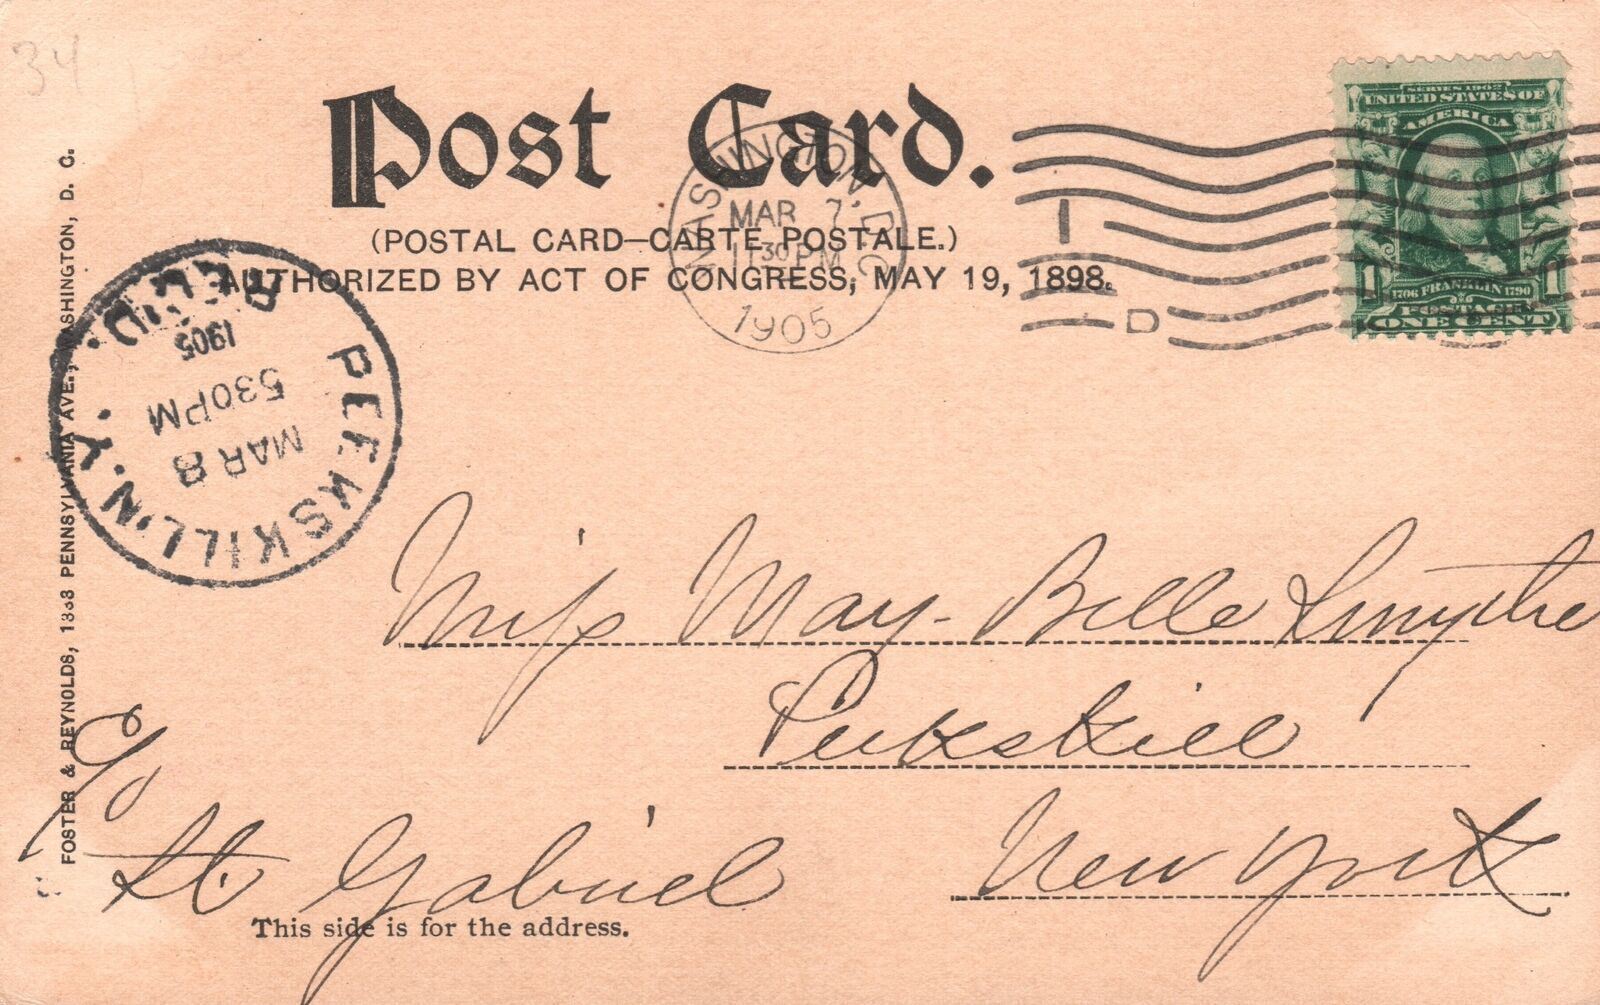 34
Post Card.
(POSTAL CARD—CARTE POSTALE.)
AUTHORIZED BY ACT OF CONGRESS, MAY 19, 1898.
WASHINGTON, D.C.
MAR 7
11 30 PM
1905
1
D
SERIES 1902
UNITED STATES OF
AMERICA
1 1
1706 FRANKLIN 1790
POSTAGE
ONE CENT
PEEKSKILL, N.Y.
MAR 8
530PM
1905
REC'D.
FOSTER & REYNOLDS, 1338 PENNSYLVANIA AVE., WASHINGTON, D. C.
Miss May-Belle Smythe
Peekskill
New York
c/o
St. Gabriel
This side is for the address.